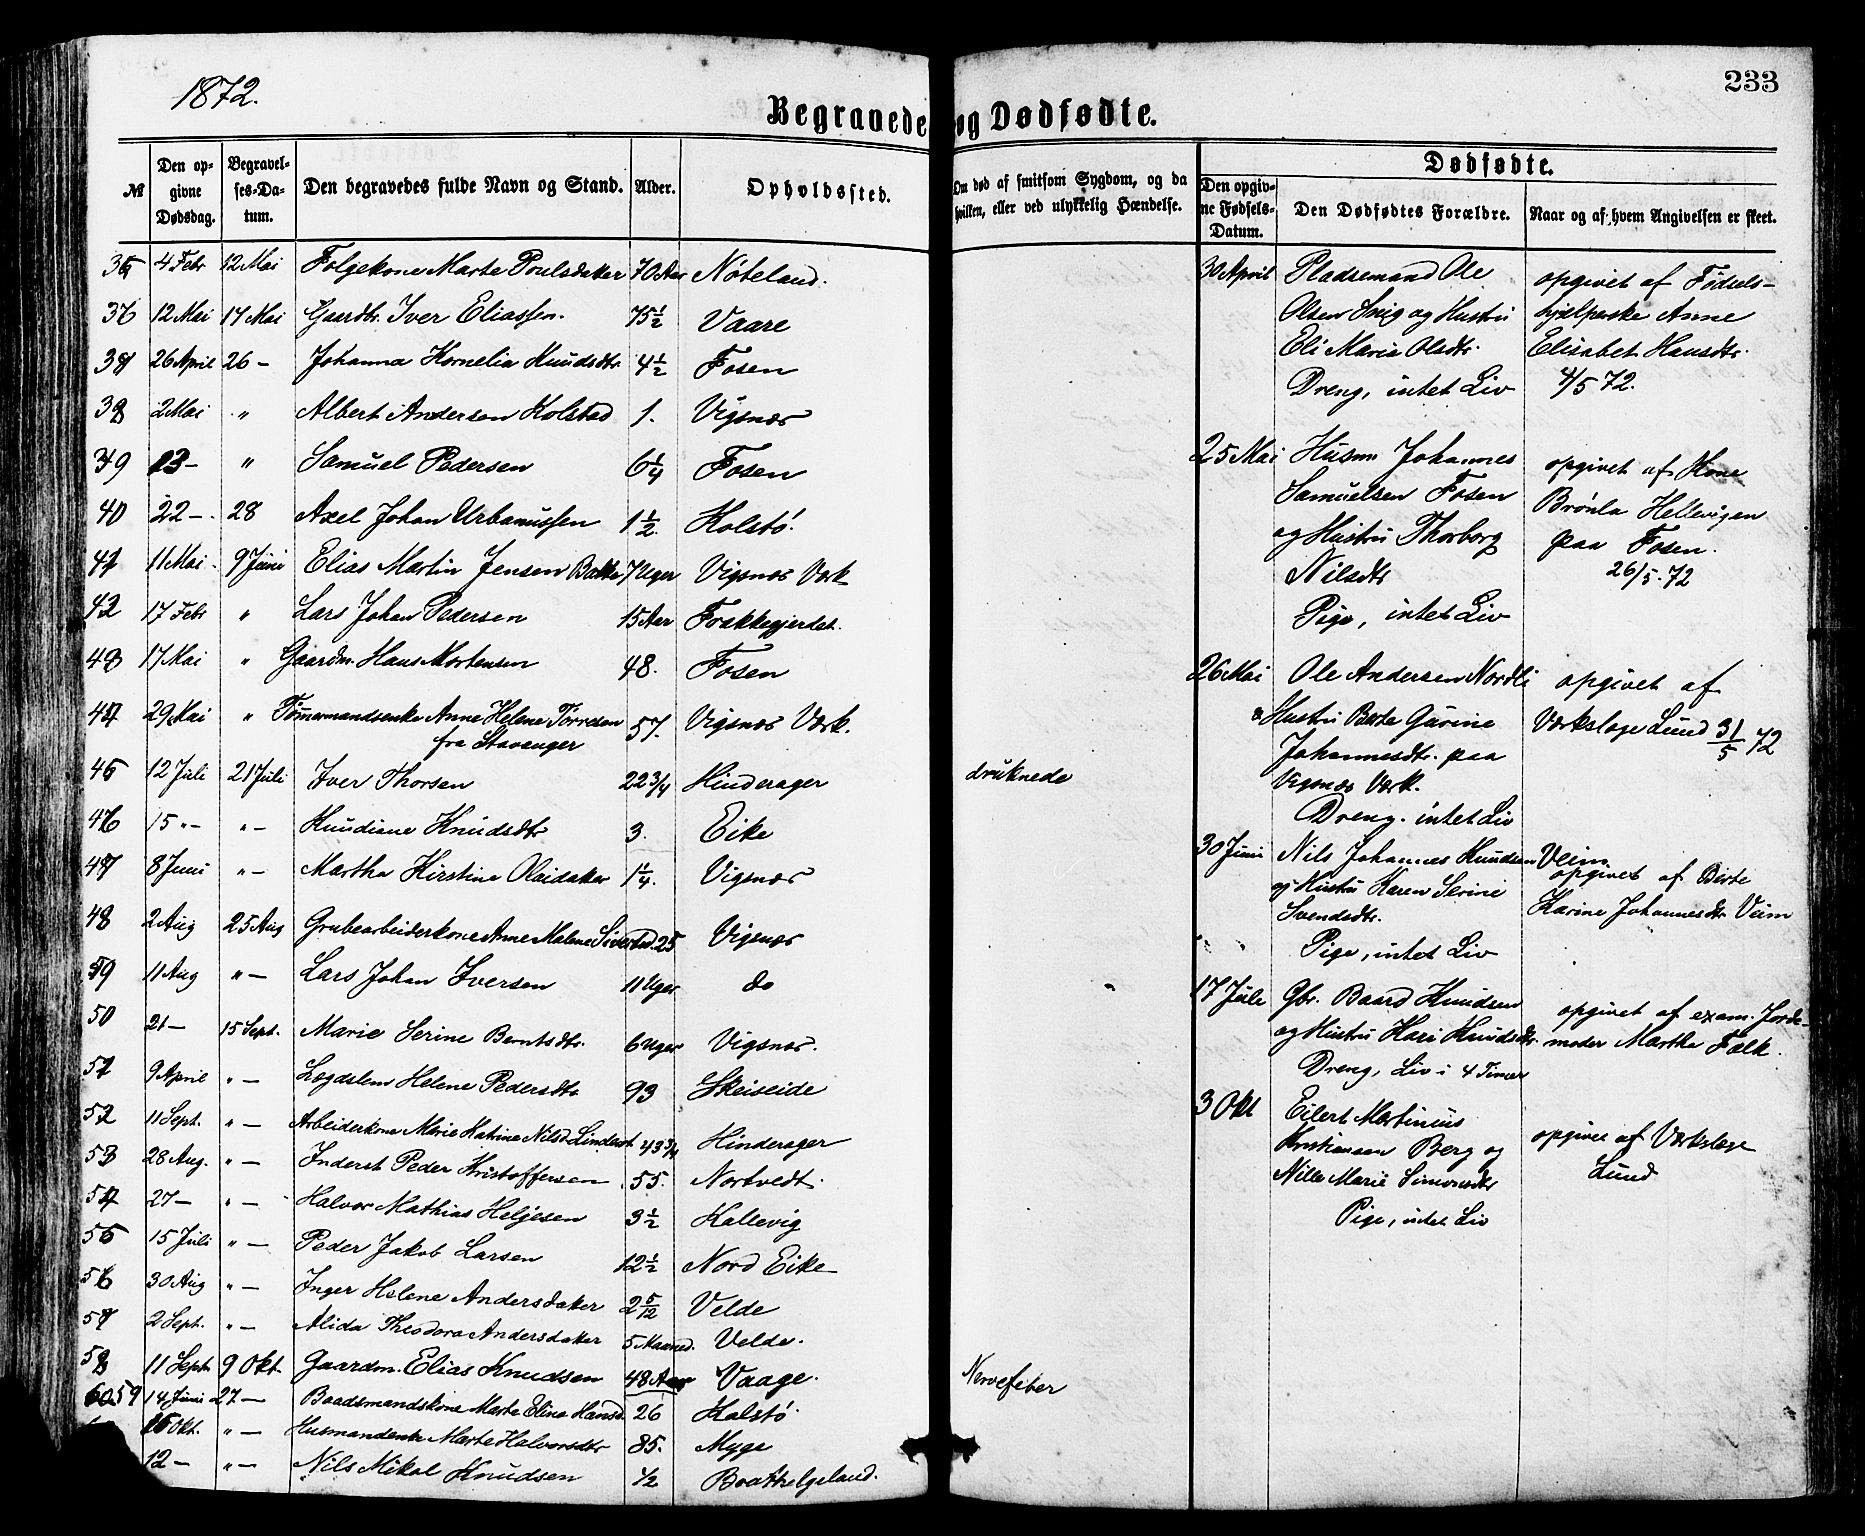 1872.
233
Begravede og Dødfødte.
№
Den opgivne Dødsdag.
Begravelses-Datum.
Den begravedes fulde Navn og Stand.
Alder.
Opholdssted.
Om død af smitsom Sygdom, og da hvilken, eller ved ulykkelig Hændelse.
Dødfødte.
Den opgivne Fødsels-Datum.
Den Dødfødtes Forældre.
Naar og af hvem Angivelsen er skeet.
35 4 Febr 12 Mai Folgekone Marte Poulsdater 70 Aar Nøteland.
36 12 Mai 17 Mai Gaardbr. Iver Eliassen. 75 1/2 Vaare
37 26 April 26 – Johanna Kornelia Knudsdtr 4 1/2 Fosen
38 2 Mai " Albert Andersen Kolstad 1. Vigsnæs
39 13 – " Samuel Pedersen 6 1/4 Fosen
40 22 –. 28 Axel Johan Urbanussen 1 1/2. Kolstø.
41 11 Mai. 9 Juni Elias Martin Jensen Bakke 7 Uger Vigsnæs Værk
42 17 Febr " Lars Johan Pedersen 15 Aar Frakkegjerdet.
43 17 Mai " Gaardm. Hans Mortensen 48. Fosen
44 29 Mai " Tømmermandsenke Anne Helene Tørresen 57. Vigsnæs Værk.
fra Stavanger
45 12 Juli 21 Juli Iver Thorsen 22 3/4 Hinderager druknede
46 15 "– "– Knudiane Knudsdtr 3. Eike
47 8 Juni "– Martha Kirstine Olaidater 1 1/4. Vigsnæs
48 2 Aug 25 Aug Grubearbeiderkone Anne Malene Sivertsd. 25 Vigsnæs
49 11 Aug "– Lars Johan Iversen 11 Uger do
50 21 – 15 Sept. Marie Serine Berntsdtr. 6 Uger Vigsnæs.
51 9 April "– Lægdslem Helene Pedersdtr 93 Skeiseide
52 11 Sept. "– Arbeiderkone Marie Katrine Nilsd. Linderot 43 3/4 Hinderager
53 28 Aug. "– Inderst Peder Kristoffersen 55. Nortvedt.
54 27 – "– Halvor Mathias Helgesen 3 1/2 Kallevig
55 15 Juli "– Peder Jakob Larsen 12 1/2 Nord Eike
56 30 Aug "– Inger Helene Andersdater 2 5/12 Velde
57 2 Sept. "– Alida Theodora Andersdater 5 Maaned. Velde.
58 11 Sept 9 Okt. Gaardm. Elias Knudsen 48 Aar Vaage. Nervefeber
59 14 Juni 27 – Baadsmandskone Marte Elina Hansd. 26 Kolstø
15 Okt. "– Husmandenke Marte Halvorsdtr 85. Myge
12 – "– Nils Mikal Knudsen 1/2 Braathelgeland.
30 April Pladsemand Ole
Olsen Snig og Hustru
Eli Maria Olsdtr.
Dreng, intet Liv
opgivet af Fødsels-
hjælperske Anne
Elisabet Hansdtr.
4/5 72.
25 Mai Husm Johannes
Samuelsen Fosen
og Hustru Thorborg
Nilsdtr
Pige, intet Liv
opgivet af Kone
Brønla Hellevigen
paa Fosen.
26/5. 72
26 Mai Ole Andersen Nordli
& Hustru Berte Gurine
Johannesdtr. paa
Vigsnæs Værk.
Dreng. intet Liv
opgivet af
Værkslæge Lund 31/5 72
30 Juni Nils Johannes Knudsen Veim
og Hustru Karen Serine
Svendsdtr.
Pige, intet Liv
opgivet af Birte
Karine Johannesdtr Veim
17 Juli Gbr. Baard Knudsen
og Hustru Kari Knudsdtr.
Dreng, Liv i 4 Timer
opgivet af exam. Jorde-
moder Martha Falk.
3 Okt Eilert Martinius
Kristiansen Berg og
Nille Marie Simonsdtr
Pige, intet Liv
opgivet af Værkslæge
Lund